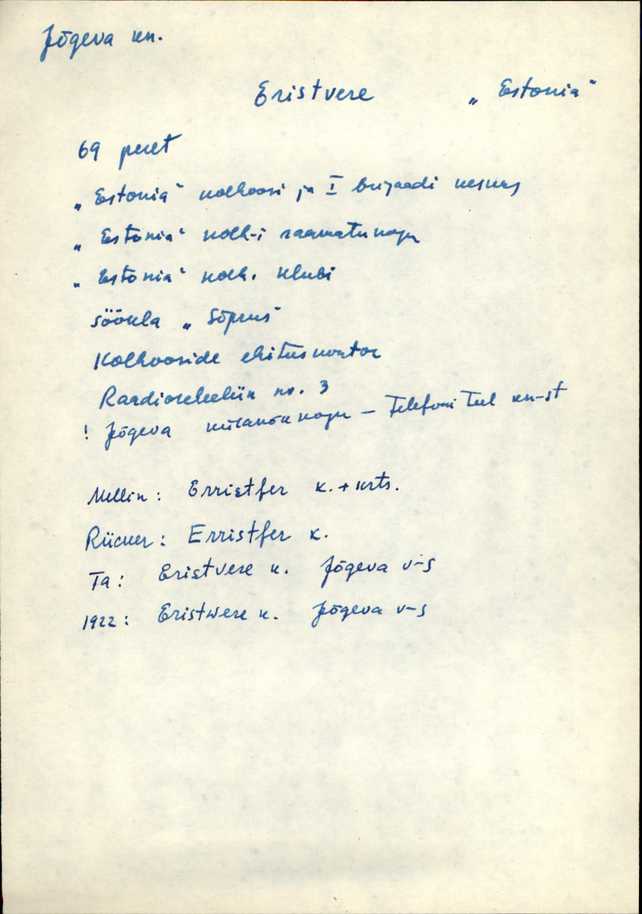 Jõgeva kn.
Eristvere „Estonia“
69 peret
„Estonia“ kolhoosi ja I brigaadi keskus
„Estonia“ kolh-i raamatukogu
„Estonia“ kolh. klubi
söökla „Sõprus“
Kolhooside ehituskontor
Raadioseheliin no. 3
! Jõgeva külanõukogu – Telefoni teel kn-st
Mellin: Erristfer k. + krts.
Rücker: Erristfer k.
Ta: Eristvere k. Jõgeva v-s
1922: Eristwere k. Jõgeva v-s